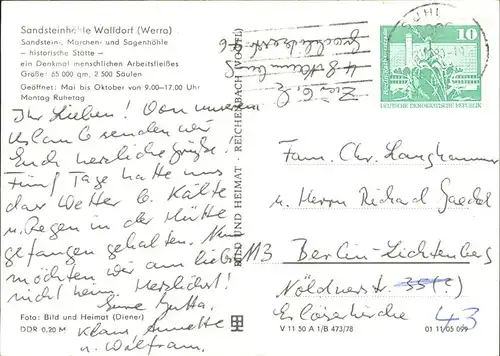 Sandsteinhöhle Walldorf (Werra)
Sandstein-, Märchen- und Sagenhöhle
- historische Stätte -
ein Denkmal menschlichen Arbeitsfleißes
Größe: 65 000 qm, 2 500 Säulen
Geöffnet: Mai bis Oktober von 9.00–17.00 Uhr
Montag Ruhetag
Ihr Lieben! Von unserem
Urlaub senden wir
Euch herzliche Grüße.
Fünf Tage hatte uns
das Wetter b. Kälte
u. Regen in der Hütte
gefangen gehalten. Nun
möchten wir am liebsten
nicht heim. Herzlichst!
Eure Jutta,
Klaus, Annette
u. Wolfram.
Foto: Bild und Heimat (Diener)
DDR 0,20 M
BILD UND HEIMAT · REICHENBACH (VOGTL)
48 Naumburg
SUHL
10
DEUTSCHE DEMOKRATISCHE REPUBLIK
Fam. Chr. Langhammer
u. Herrn Richard Gaedel
113 Berlin-Lichtenberg
Nöldnerstr. 35(?)
Erlöserkirche 43
V 11 50 A 1/B 473/78
01 11 05 099